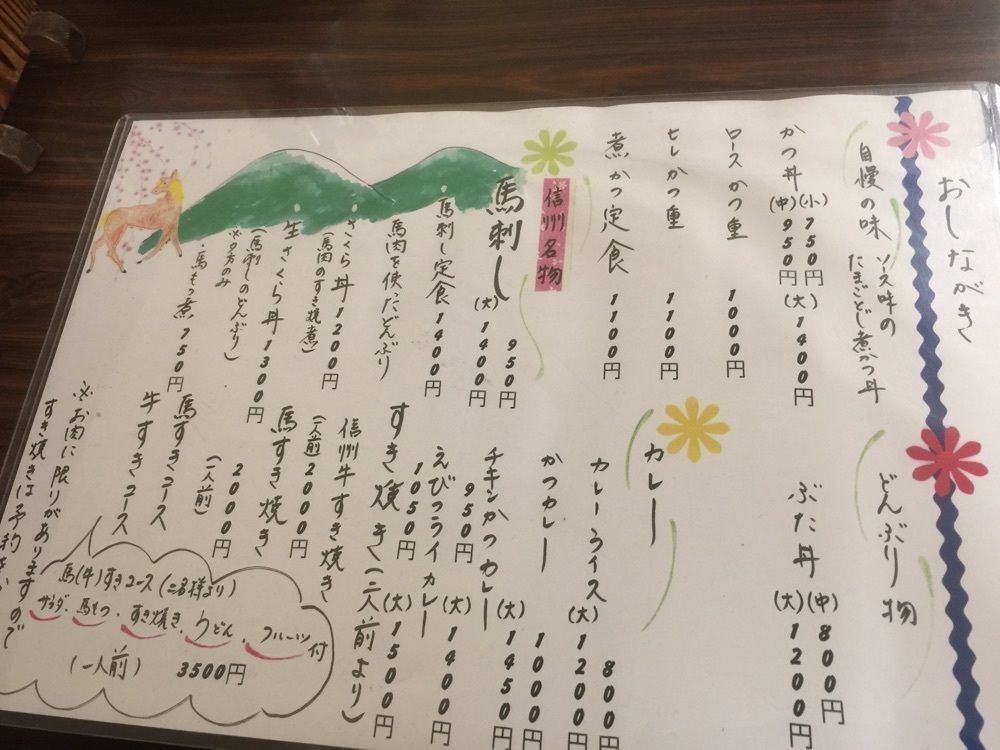 おしながき
自慢の味 ソース味の
たまごとじ煮かつ丼
かつ丼(小)750円
(中)950円(大)1400円
ロースかつ重 1000円
ヒレかつ重 1100円
煮かつ定食 1100円
どんぶり物
ぶた丼(中)800円
(大)1200円
カレー
カレーライス 800円
(大)1200円
かつカレー 1000円
(大)1450円
チキンかつカレー
950円(大)1400円
えびフライカレー
1050円(大)1500円
信州名物
馬刺し 950円
(大)1400円
馬刺し定食 1400円
馬肉を使ったどんぶり
さくら丼 1200円
(馬肉のすき焼煮)
生さくら丼 1300円
(馬刺しのどんぶり)
※夕方のみ
・馬もつ煮 750円
すき焼き(二人前より)
信州牛すき焼き
(一人前)2000円
馬すき焼き
(一人前)2000円
馬すきコース
牛すきコース
馬(牛)すきコース(二名様より)
サラダ、馬もつ、すき焼き、うどん、フルーツ付
(一人前) 3500円
※お肉に限りがありますので
すき焼きは予約